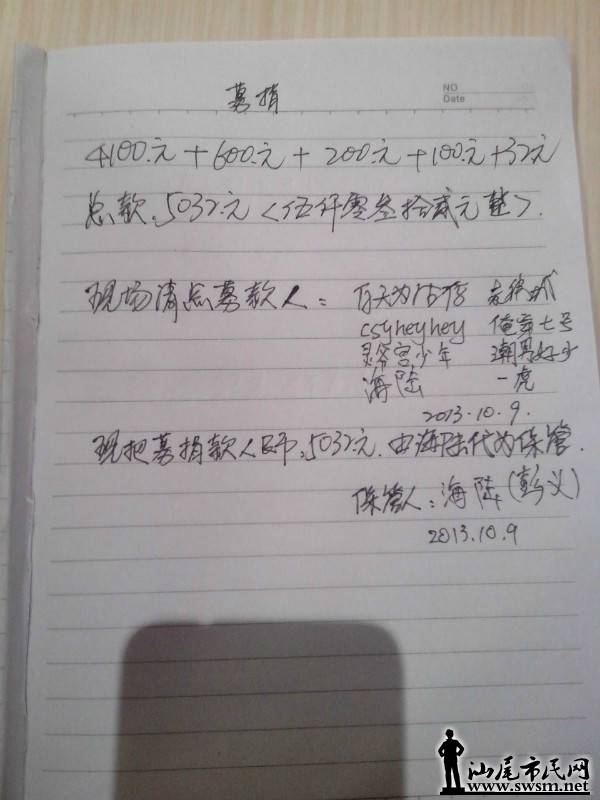 NO
Date
募捐
4100.元+600.元+200.元+100.元+32元
总款.5032.元<伍仟零叁拾贰元整>.
现场清点募款人:
csyheyhey 俺宰七号
灵爷宫少年 潮男好少
海陆 一虎
2013.10.9.
现把募捐款人民币.5032.元.由海陆代为保管.
保管人:海陆(彭义)
2013.10.9
汕尾市民网
www.swsm.net